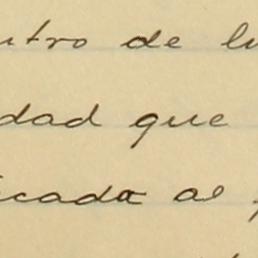 ntro de lu
dad que
icada al